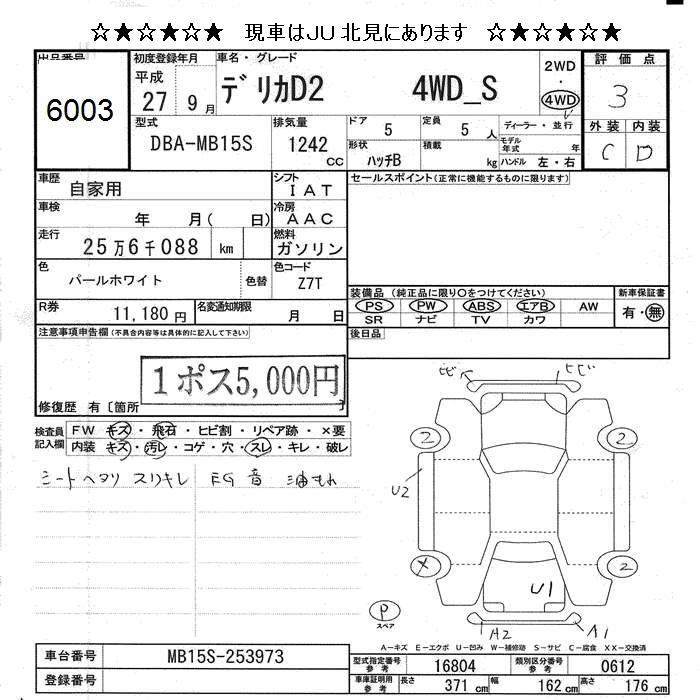 ☆★☆★☆★ 現車はJU北見にあります ☆★☆★☆★
出品番号
6003
初度登録年月
平成
27 9月
車名・グレード
デリカD2 4WD_S
2WD
・
4WD
評価点
3
外装 内装
C D
型式
DBA-MB15S
排気量
1242
cc
ドア 5
定員 5人
ディーラー・並行
形状
ハッチB
積載 kg
モデル年式 年
ハンドル 左・右
車歴
自家用
シフト
IAT
車検
年 月( 日)
冷房
AAC
走行
25万6千088 km
燃料
ガソリン
色
パールホワイト
色替
色コード
Z7T
R券
11,180円
名変通知期限
月 日
セールスポイント(正常に機能するものに限ります)
装備品(純正品に限り○をつけてください)
PS PW ABS エアB AW
SR ナビ TV カワ
新車保証書
有・無
後日品
注意事項申告欄(不具合内容等は具体的に記入して下さい)
1ポス5,000円
修復歴 有〔箇所 〕
検査員記入欄
FW キズ・飛石・ヒビ割・リペア跡・×要
内装 キズ・汚レ・コゲ・穴・スレ・キレ・破レ
シートヘタリ スリキレ EG音 油もれ
ヒビ ヒビ
2 2
U2
X 2
U1
P
スペア
A2 A1
A-キズ E-エクボ U-凹み W-補修跡 S-サビ C-腐食 XX-交換済
車台番号 MB15S-253973
登録番号
型式指定番号 参考 16804
類別区分番号 参考 0612
車庫証明用 参考 長さ 371cm 幅 162cm 高さ 176cm